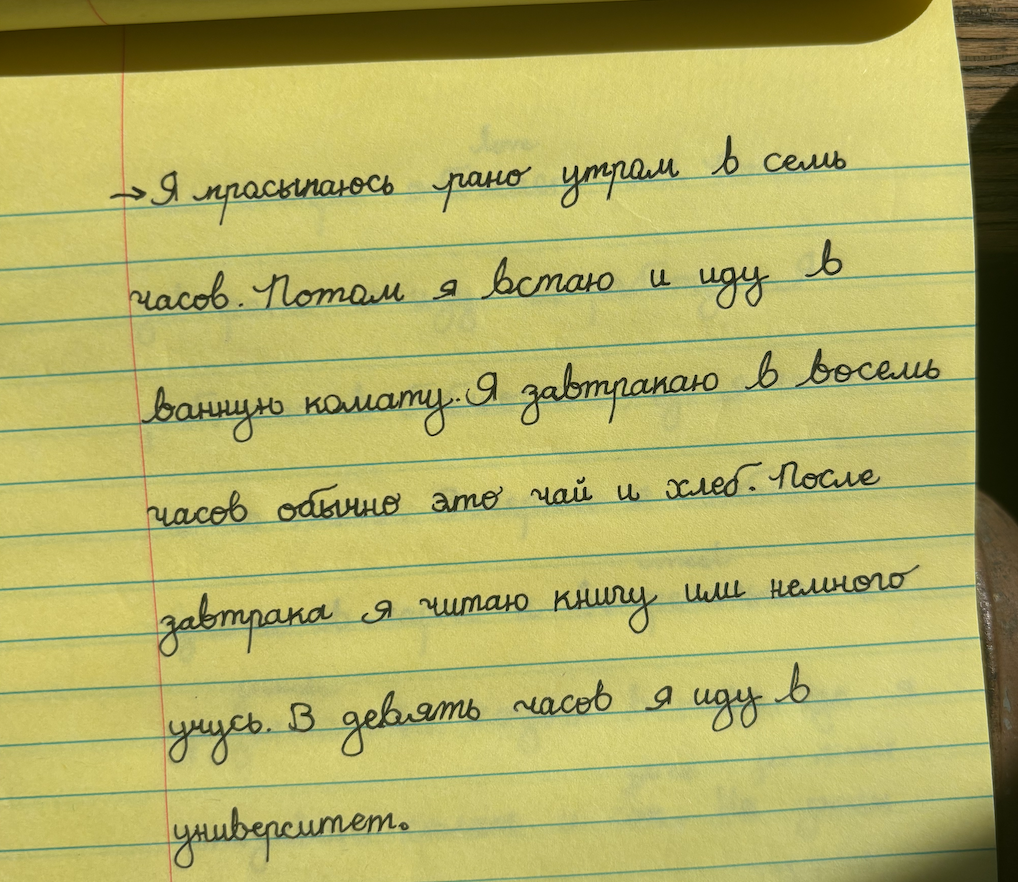 → Я прасыпаюсь рано утрам в семь
часов. Потом я встаю и иду в
ванную комату. Я завтракаю в восемь
часов обычно это чай и хлеб. После
завтрака я читаю книгу или немного
учусь. В девять часов я иду в
университет.